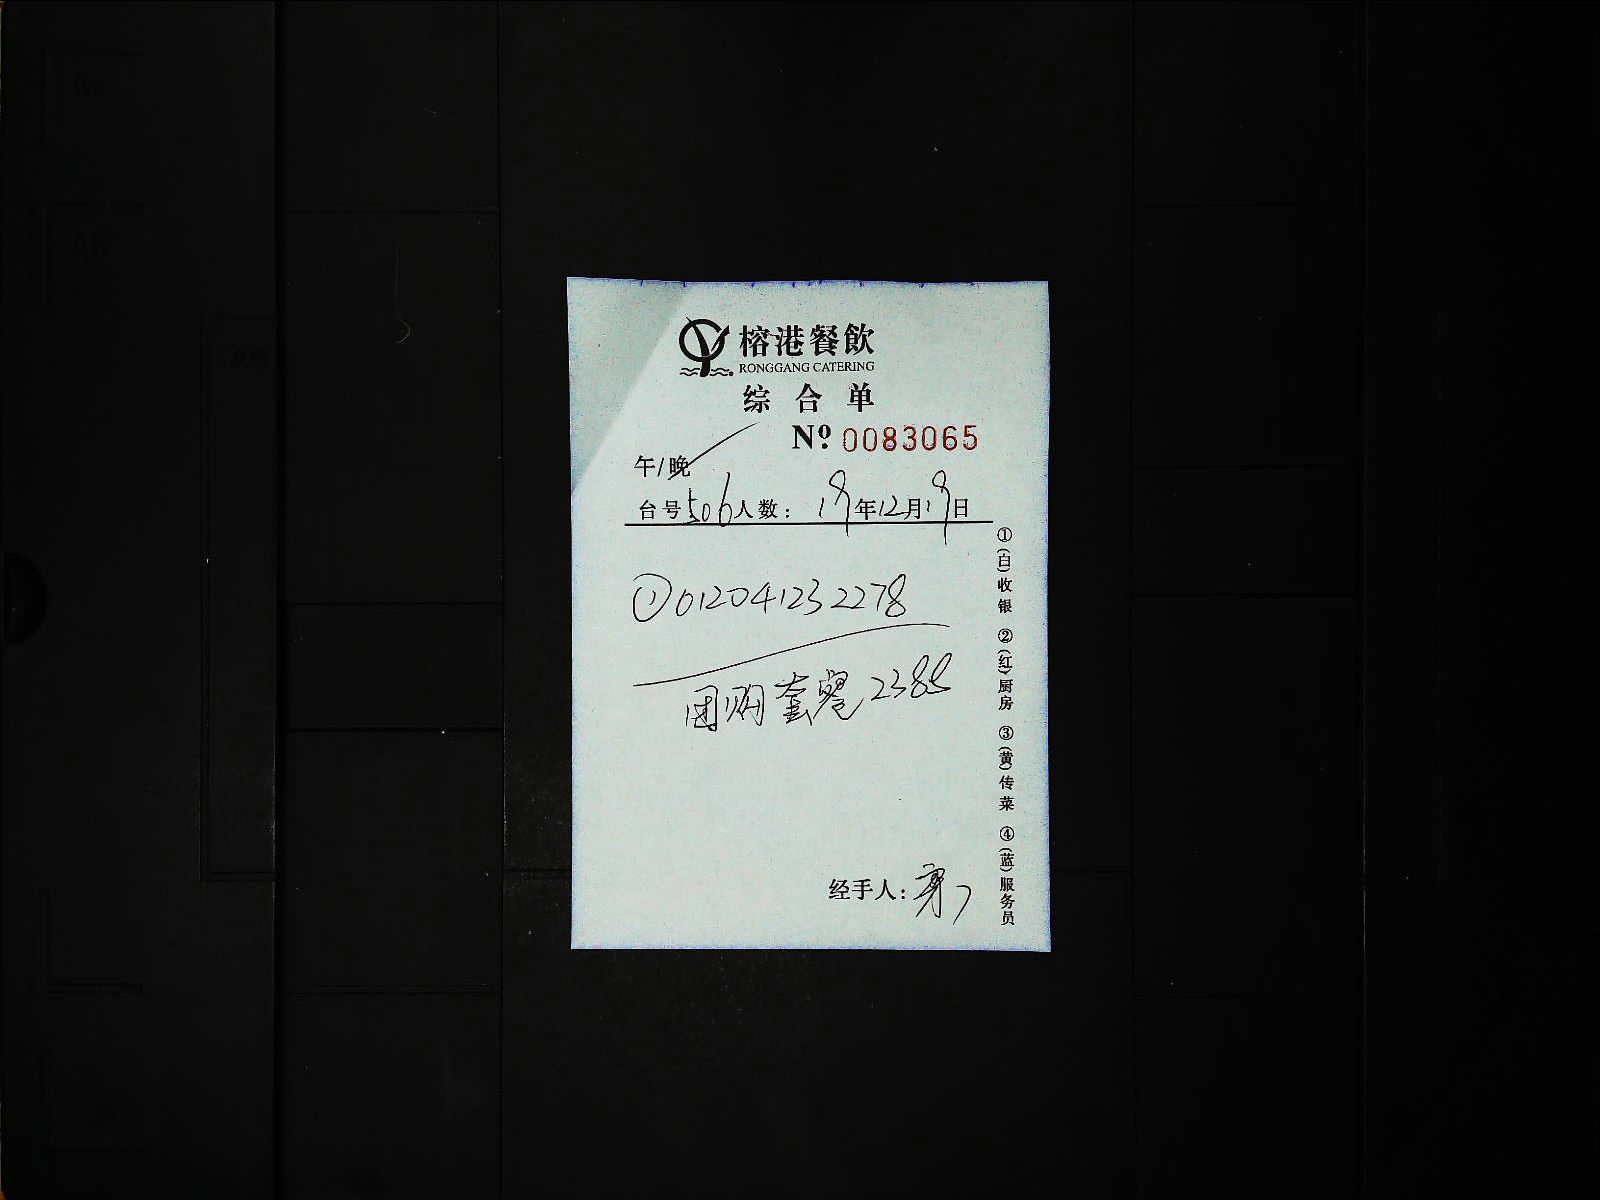 榕港餐飲
RONGGANG CATERING
综合单
№ 0083065
午/晚
台号506人数: 19年12月19日
①012041232278
团购套餐2388
经手人:
①(白)收银 ②(红)厨房 ③(黄)传菜 ④(蓝)服务员